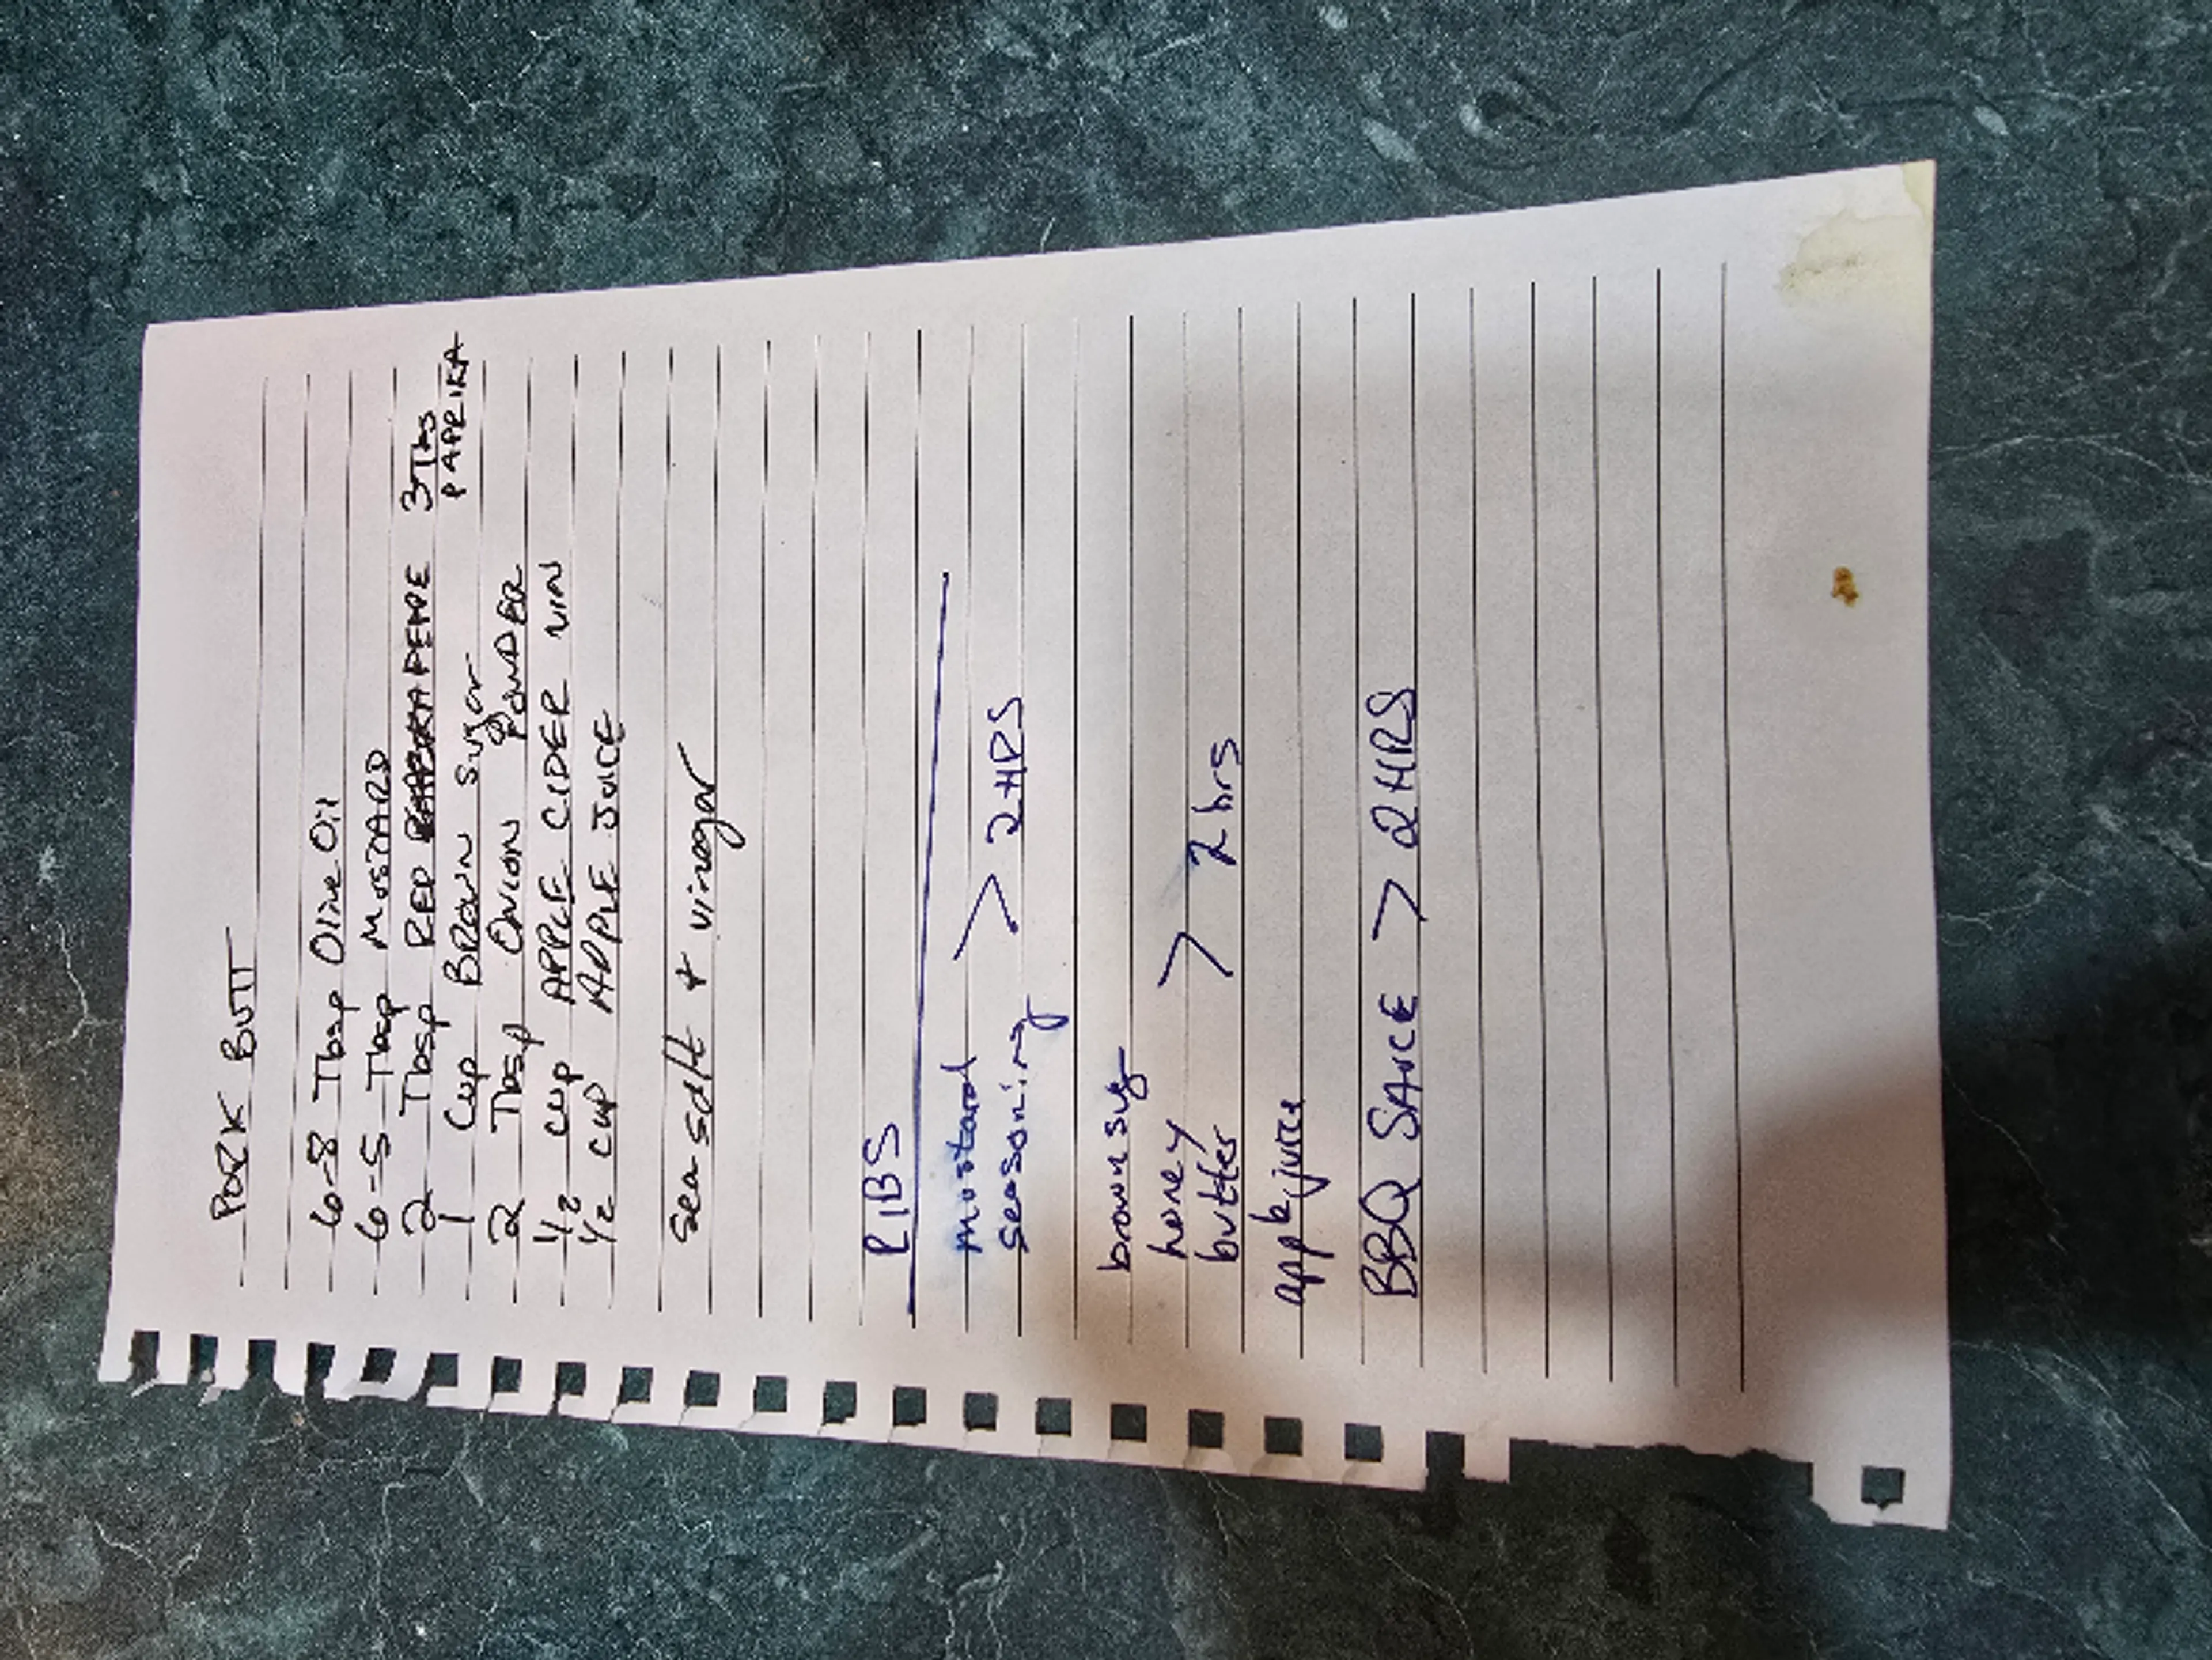 PORK BUTT
6-8 Tbsp Olive Oil
6-5 Tbsp MUSTARD
2 Tbsp RED PEPPE 3 Tbs
PAPRIKA
1 Cup BROWN Sugar
2 Tbsp ONION POWDER
1/2 CUP APPLE CIDER VIN
1/2 CUP APPLE JUICE
sea salt + vinegar
RIBS
mustard
seasoning > 2 HRS
brown sug
honey
butter > 2 hrs
apple juice
BBQ SAUCE > 2 HRS